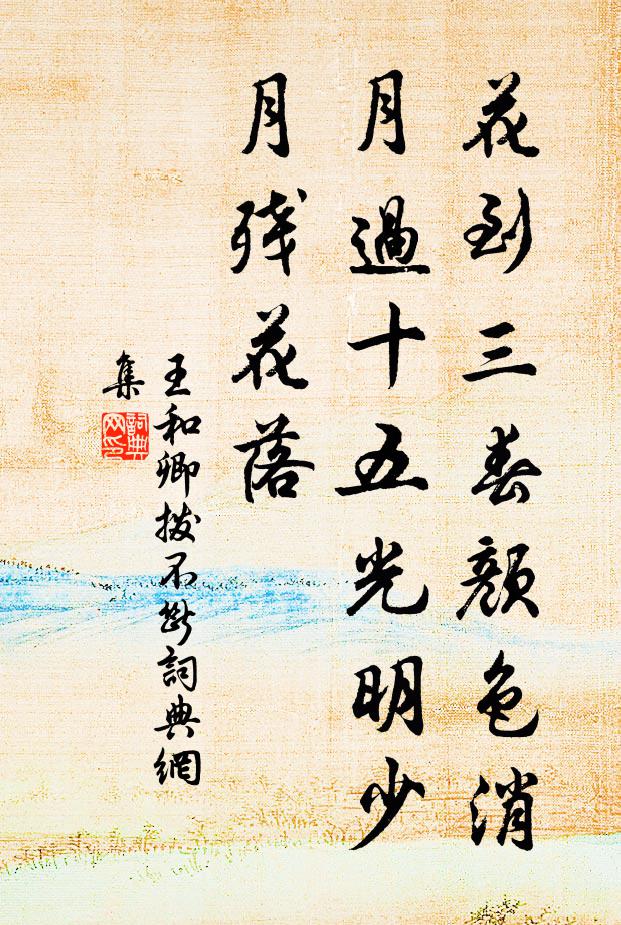 花到三春颜色消
月過十五光明少
月残花落
王和卿拨不断詞典網
集
詞典
网印